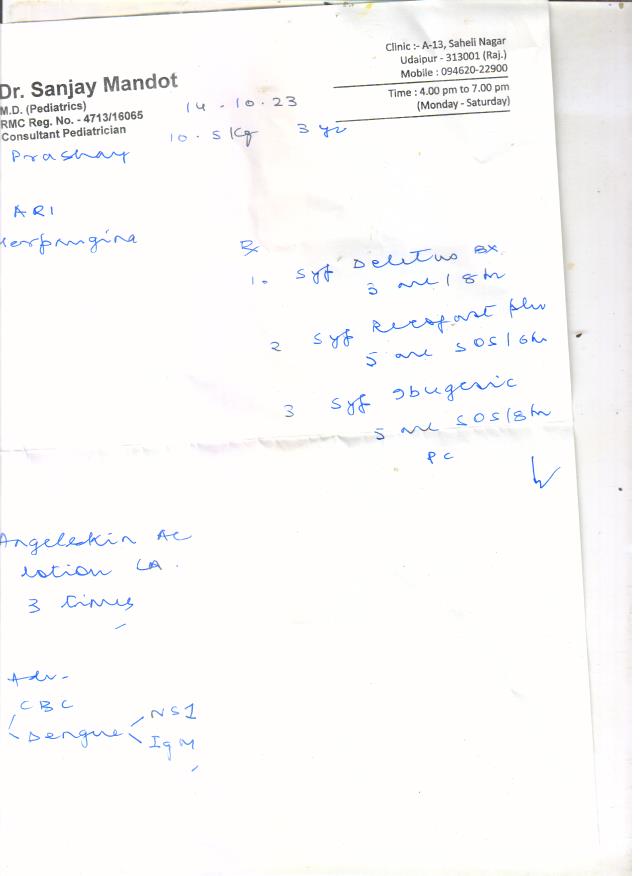 Dr. Sanjay Mandot
M.D. (Pediatrics)
RMC Reg. No. - 4713/16065
Consultant Pediatrician
Clinic :- A-13, Saheli Nagar
Udaipur - 313001 (Raj.)
Mobile : 094620-22900
Time : 4.00 pm to 7.00 pm
(Monday - Saturday)
14 - 10 . 23
10 . 5 Kg 3 yr
Prashay
ARI
Herpangina
Rx
1. Syp Deletus BX
3 ml / 8 hr
2 Syp Recofast plus
5 ml SOS / 6 hr
3 Syp Ibugesic
5 ml SOS / 8 hr
PC
AC
lotion LA .
3 times
Adv -
CBC
Dengue
NS1
IgM